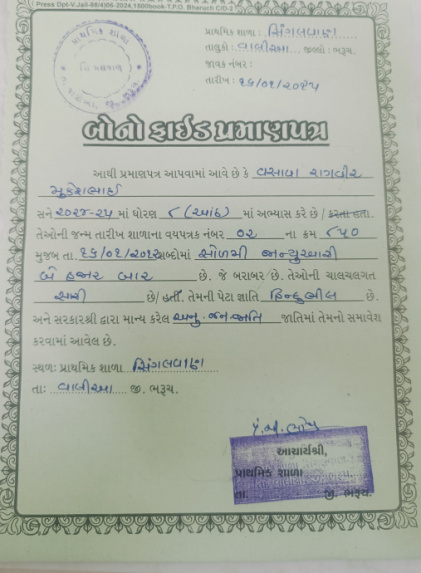 Press Dpt-V.Jali-89(4)06-2024,1500book-T.P.O. Bharuch C/D-2
પ્રાથમિક શાળા : સિંગલવાણ
તાલુકો : વાલીઆ જીલ્લો : ભરૂચ.
જાવક નંબર :
તારીખ : ૧૬/૦૧/૨૦૨૫
પ્રાથમિક શાળા
બોનોફાઈડ પ્રમાણપત્ર
આથી પ્રમાણપત્ર આપવામાં આવે છે કે વસાવા રાગવીર
મુકેશભાઈ
સને ૨૦૨૪-૨૫ માં ધોરણ ૮ (આઠ) માં અભ્યાસ કરે છે / કરતા હતા.
તેઓની જન્મ તારીખ શાળાના વયપત્રક નંબર ૦૨ ના ક્રમ ૮૫૦
મુજબ તા. ૧૬/૦૧/૨૦૧૨ શબ્દોમાં સોળમી જાન્યુઆરી
બે હજાર બાર છે. જે બરાબર છે. તેઓની ચાલચલગત
સારી છે/ હતી. તેમની પેટા જ્ઞાતિ હિન્દુભીલ છે.
અને સરકારશ્રી દ્વારા માન્ય કરેલ અનુ.જન.જાતિ જાતિમાં તેમનો સમાવેશ
કરવામાં આવેલ છે.
સ્થળ: પ્રાથમિક શાળા સિંગલવાણ
તા: વાલીઆ જી. ભરૂચ.
આચાર્યશ્રી,
પ્રાથમિક શાળા
તા. જી. ભરૂચ.